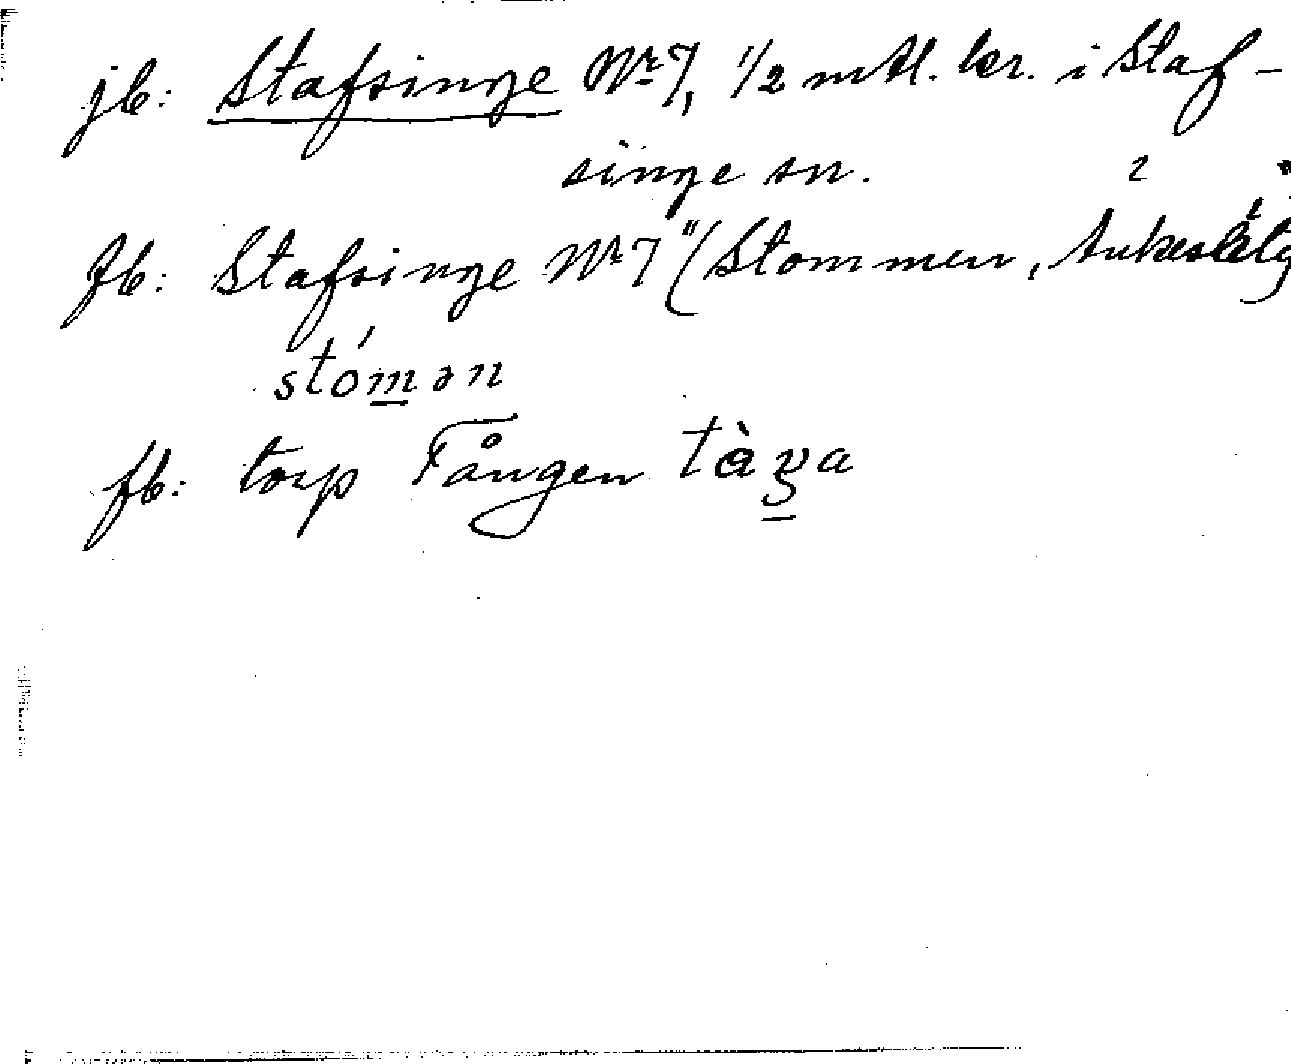 jb: Stafsinge Nr 7, 1/2 mtl. kr. i Staf-
singe sn.
fb: Stafsinge Nr 7" (Stommen,
stómən
fb: torp Tången tàŋa